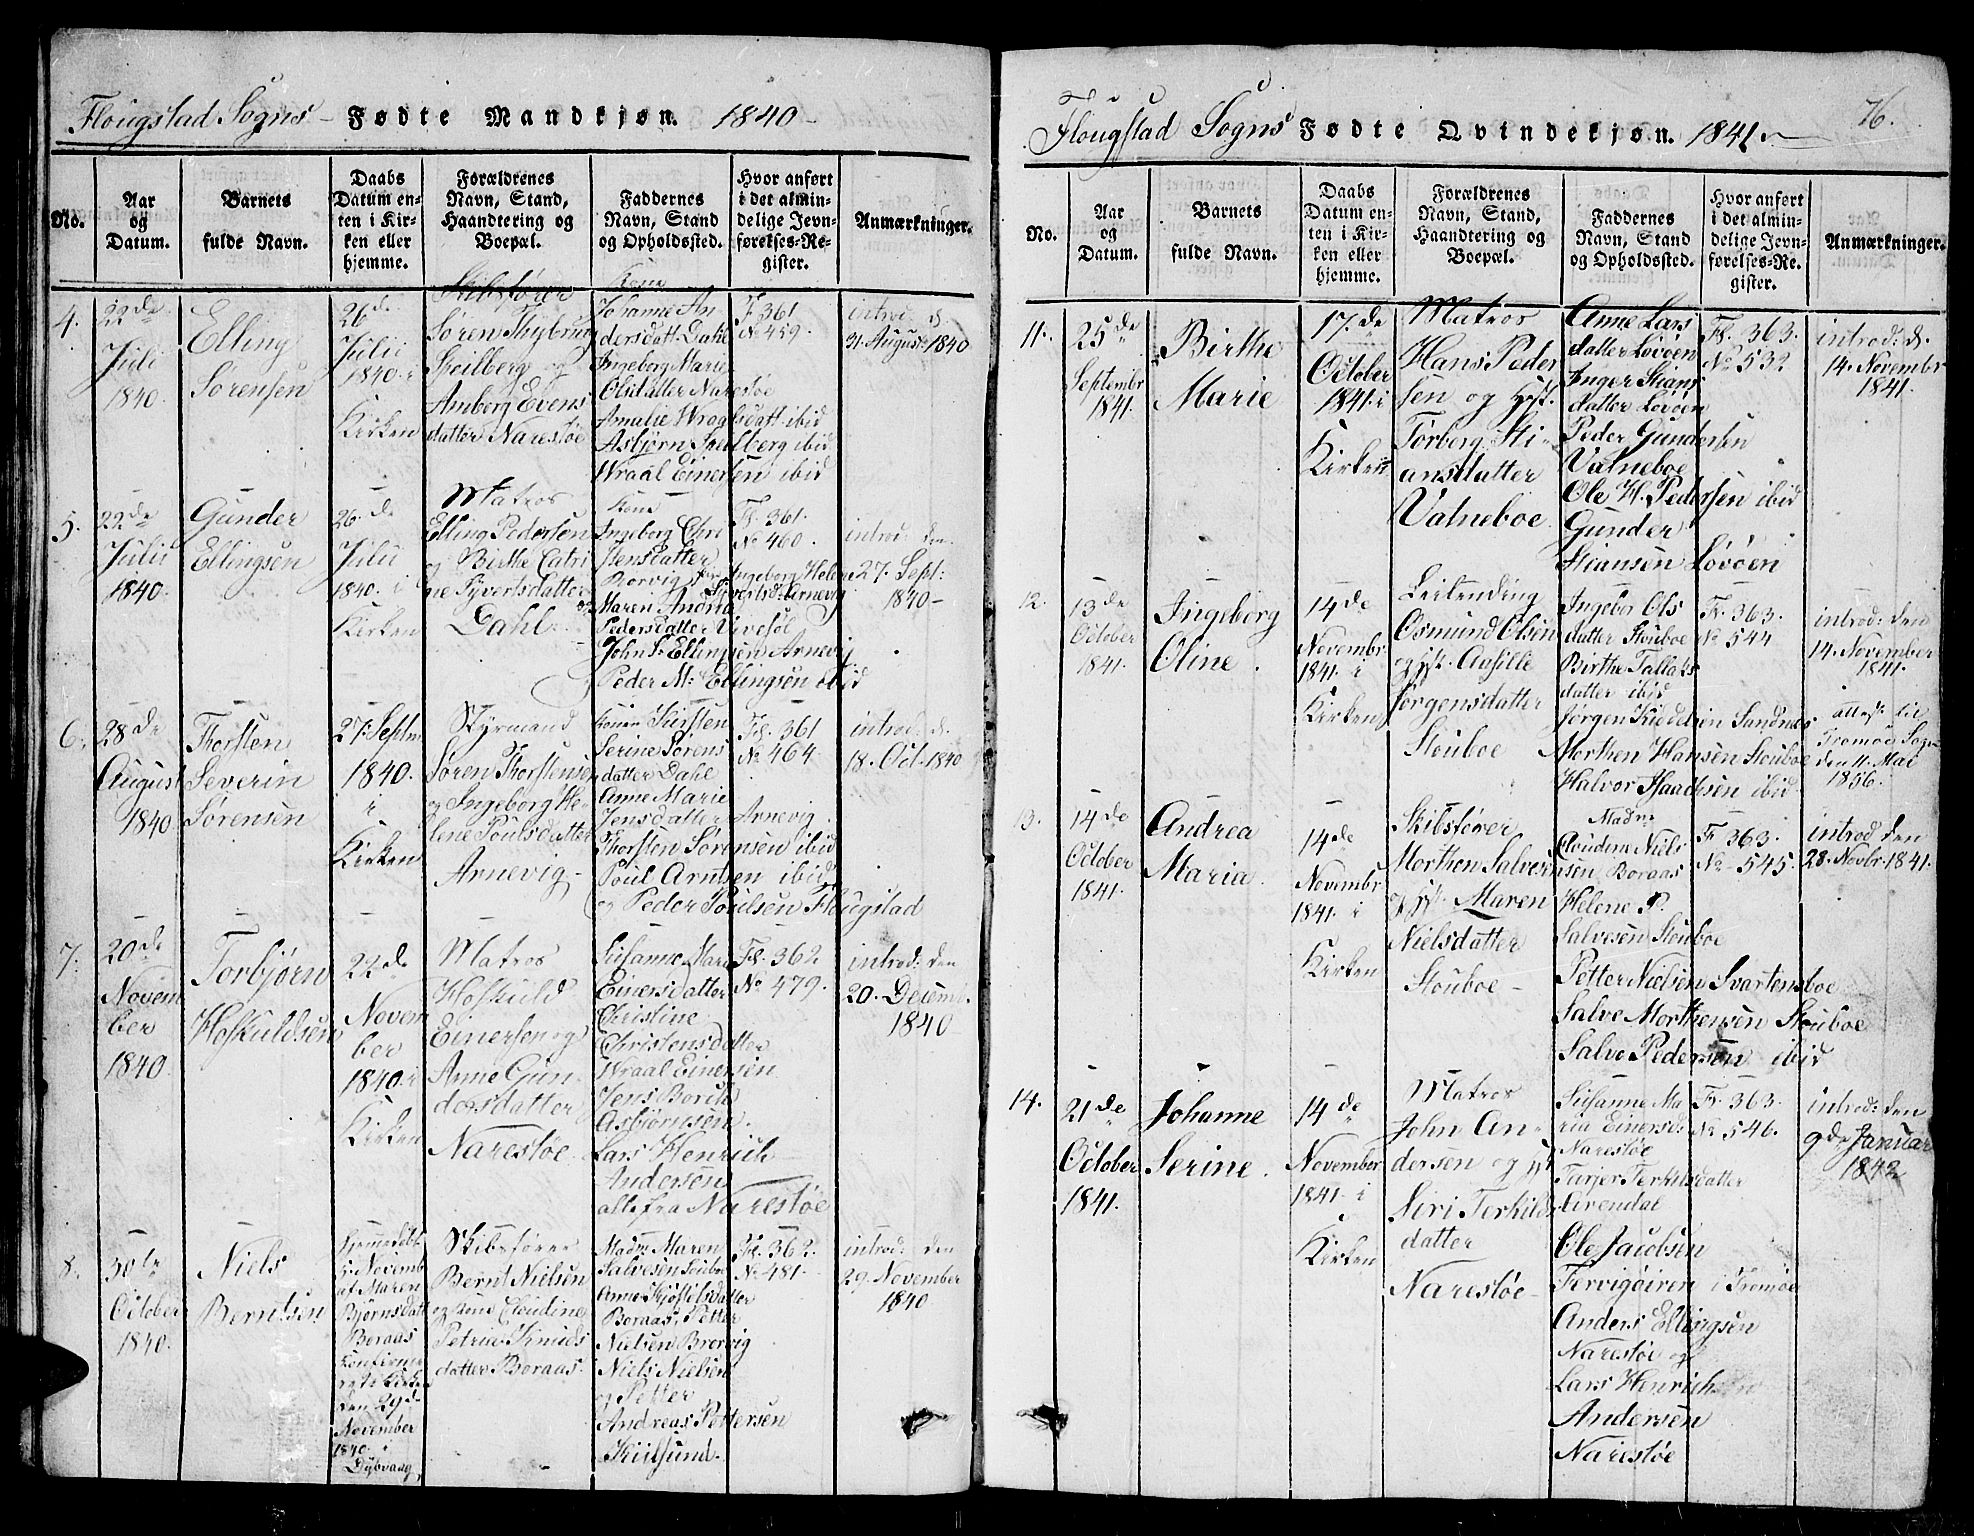 Flougstad Sogns – Fødte Mandkjøn. 1840 –
No.
Aar
og
Datum.
Barnets
fulde Navn.
Daabs
Datum en-
ten i Kir-
ken eller
hjemme.
Forældrenes
Navn, Stand,
Haandtering og
Boepæl.
Faddernes
Navn, Stand
og Opholdssted.
Hvor anført
i det almin-
delige Jevn-
førelses-Re-
gister.
Anmærkninger.
4.
22de
Juli
1840.
Elling
Sørensen
26de
Julii
1840. i
Kirken
Skibsfører
Søren Thybring
Skeilberg og
Amberg Evens
datter Narestøe
Kone
Johanne An
dersdatt Dahl
Ingeborg Marie
Olsdatter Narestøe
Amalie Wraalsdatt ibid
Asbjørn Skeilberg ibid
Wraal Einersen ibid
F 361
No 459.
introd: d.
31. August: 1840
5.
22de
Julii
1840.
Gunder
Ellingsen
26.de
Julii
1840. i
Kirken
Matros
Elling Pedersen
og Birthe Catri
ne Syvertsdatter
Dahl.
Kone
Ingeborg Chri
stensdatter
Borvig
Ingeborg Helene
Syvertsd. Arnevig
Maren Andrea
Pedersdatter
John S. Ellingsen Arnevig
Peder M: Ellingsen ibid
Fl. 361.
No 460.
introd: den
27. Sept:
1840 –
6.
28de
August
1840
Thorsten
Severin
Sørensen
27. Septm
1840.
i
Kirken
Styrmand
Søren Thorstensen
og Ingeborg He-
lene Poulsdatter
Arnevig –
Konen Kirsten
Serine Sørens
datter Dahl
Anne Marie
Jensdatter Arnevig
Thorsten Sørensen ibid
Poul Arntsen ibid
og Peder Poulsen Flougstad
Fl. 361
No 464.
introd: d.
18. Oct. 1840
7.
20de
Novem
ber
1840.
Torbjørn
Hofkuldsen
22de
Novem
ber
1840. i
Kirken
Matros
Hofkuld
Einersen og
Anne Gun
dersdatter
Narestøe.
Susanne Marie
Einersdatter
Christine
Christensdatter
Wraal Einersen
Jens Borch
Asbjørnsen.
Lars Henrich
Andersen
alle fra Narestøe
Fl. 362
No 479.
introd: den
20. Decemb.
1840 –
8.
30te
October
1840.
Niels
Berntsen
Hjemmedøbt
5 Novemb
af Maren
Bjørnsdatt
Boraas
Konfirme
ret i Kirken
den 29de
November
1840. i
Dybvaag.
Skibsfører
Bernt Nielsen
og Kone Cloudine
Petria Knuds
datter Boraas.
Madm Maren
Salvesen Stouboe
Anne Kjøstelsdatter
Boraas, Petter
Nielsen Brovig
Niels Nielsen
og Petter
Andreas Pettersen
Kiilsund.
Fl. 362.
No 481.
introd: den
29. November
1840
Flougstad Sogns Fødte Qvindekjøn. 1841.
76.
No.
Aar
og
Datum.
Barnets
fulde Navn.
Daabs
Datum en-
ten i Kir-
ken eller
hjemme.
Forældrenes
Navn, Stand,
Haandtering og
Boepæl.
Faddernes
Navn, Stand
og Opholdssted.
Hvor anført
i det almin-
delige Jevn-
førelses-Re-
gister.
Anmærkninger.
11.
25de
Septembr
1841.
Birthe
Marie
17.de
October
1841. i
Kirken
Matros
Hans Peder
sen og Hst.
Torberg Sti-
ansdatter
Valneboe.
Anne Lars
datter Løvøen
Inger Stians
datter Løvøen
Peder Gundersen
Valneboe
Ole H. Pedersen ibid
Gunder
Stiansen Løvøen
Fl. 363.
No 532
introd: d.
14. Novembr
1841.
12.
13de
October
1841.
Ingeborg
Oline.
14de
Novembr.
1841. i
Kirken
Leilending
Osmund Olsen
og Hst. Aasille
Jørgensdatter
Stouboe
Ingebor Ols
datter Stouboe
Birthe Tallaks
datter ibid
Jørgen Kieddelsen Sandnes
Morthen Hansen Stouboe
Halvor Isaachsen ibid
Fr. 363.
No 544
introd: den
14. November
1841.
attest til
Tromøe Sogn
den 11. Mai
1856.
13.
14de
October
1841.
Andrea
Maria.
14de
Novembr
1841. i
Kirken
Skibsfører
Morthen Salvesen
og Hst. Maren
Nielsdatter
Stouboe –
Madme
Cloudine Niels
sen, Boraas
Helene P.
Salvesen Stouboe
Petter Nielsen Svartensboe
Salve Morthensen Stouboe
Salve Pedersen ibid
Fr 363.
No – 545.
introd den
28. Novbr. 1841.
14.
21de
October
1841.
Johanne
Serine.
14de
November
1841. i
Kirken
Matros
John An-
dersen og Hst
Siri Terkilds
datter
Narestøe –
Susanne Ma
ria Einersd:
Narestøe
Tarjer Terkildsdatter
Livendal
Ole Jacobsen
Tervigøiren i Tromøe
Anders Ellingsen
Narestøe og
Lars Henrich
Andersen
Narestøe
Fr. 363.
No 546.
introd: den
9de Januar
1842